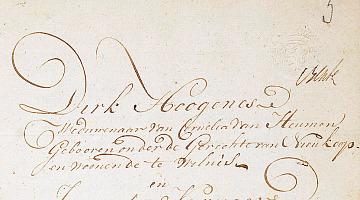 5
Dirk Hoogenes
Weduwenaar van Cornelia van Heumen
Gebooren onder de Gerechte van Nieukoop.
en woonende te Velnis
en